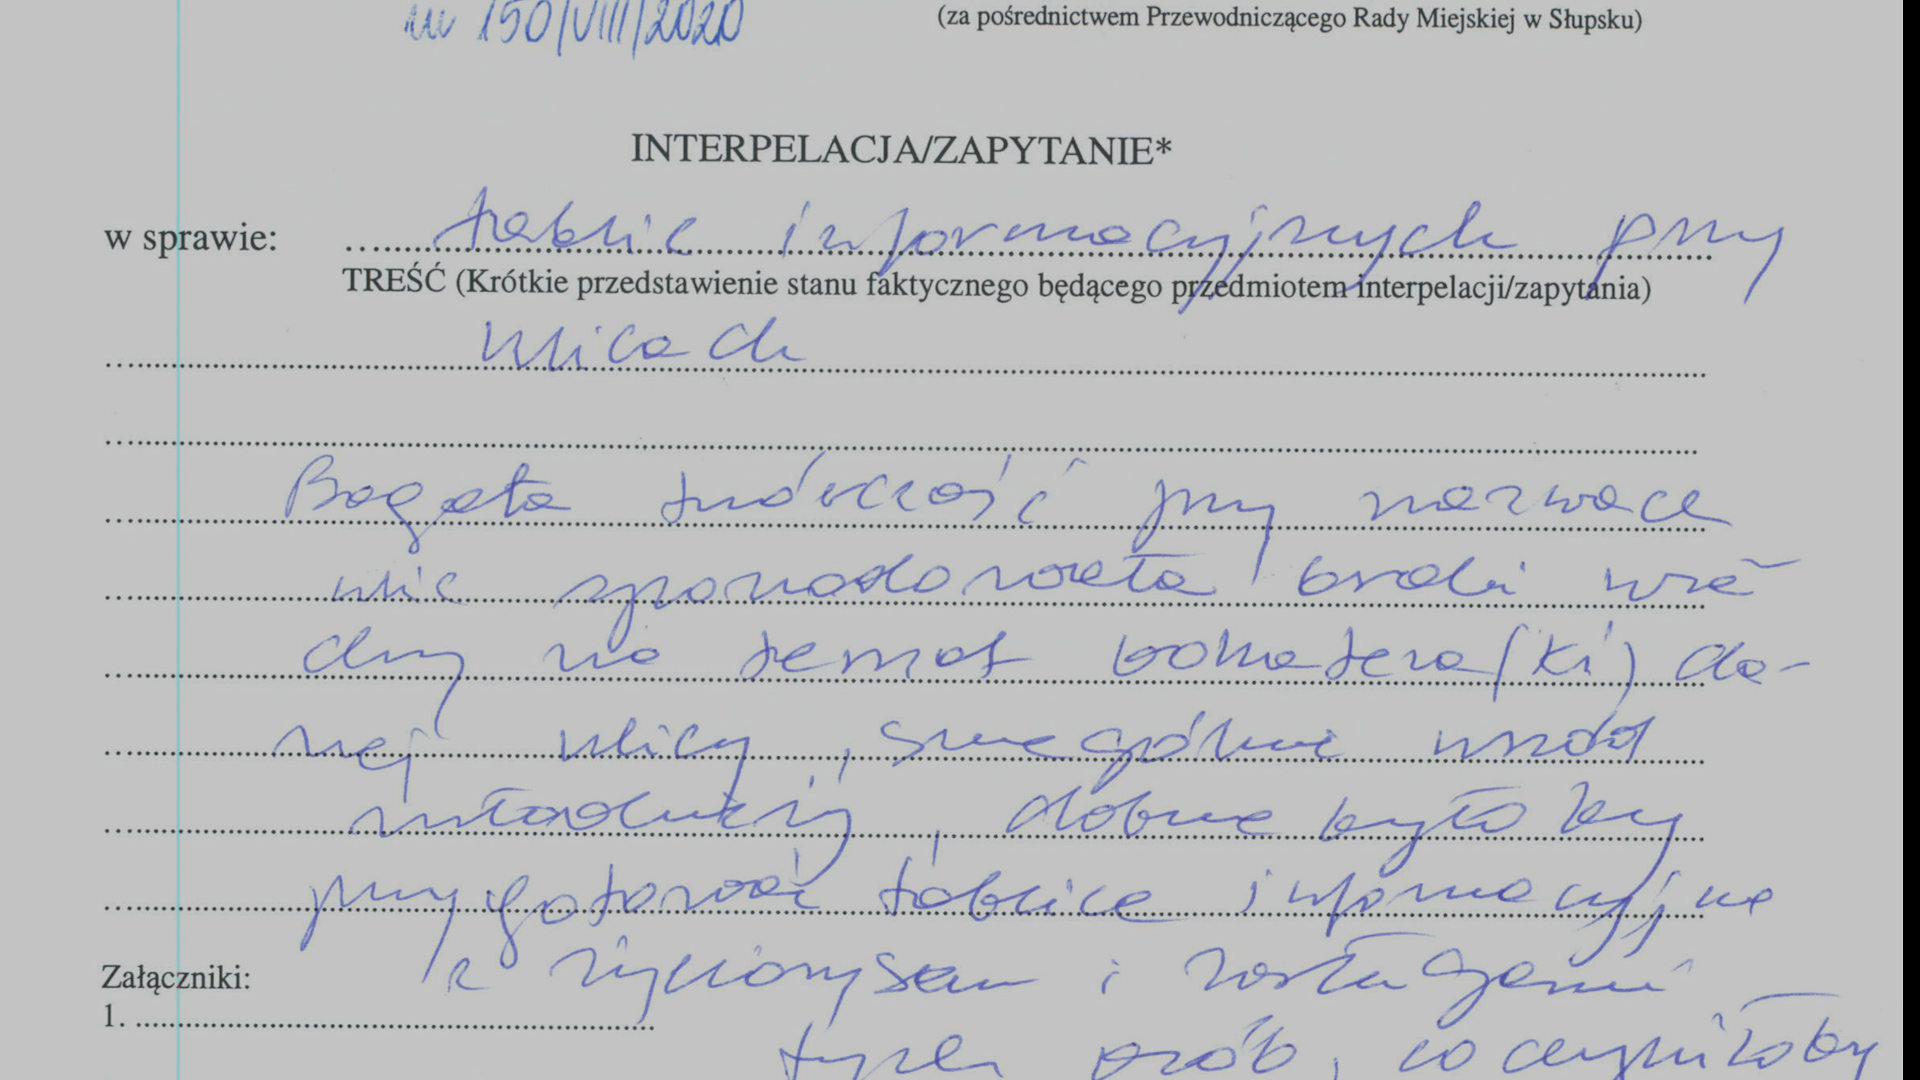 nr 150/VIII/2020
(za pośrednictwem Przewodniczącego Rady Miejskiej w Słupsku)
INTERPELACJA/ZAPYTANIE*
w sprawie: tablic informacyjnych przy
TREŚĆ (Krótkie przedstawienie stanu faktycznego będącego przedmiotem interpelacji/zapytania)
ulicach
Bogata twórczość przy nazwach
ulic spowodowała brak wie-
dzy na temat bohatera(ki) da-
nej ulicy, szczególnie wśród
młodzieży, dobrze byłoby
przygotować tablice informacyjne
Załączniki: z życiorysem i zasługami
1.
tych osób, co czyniłoby